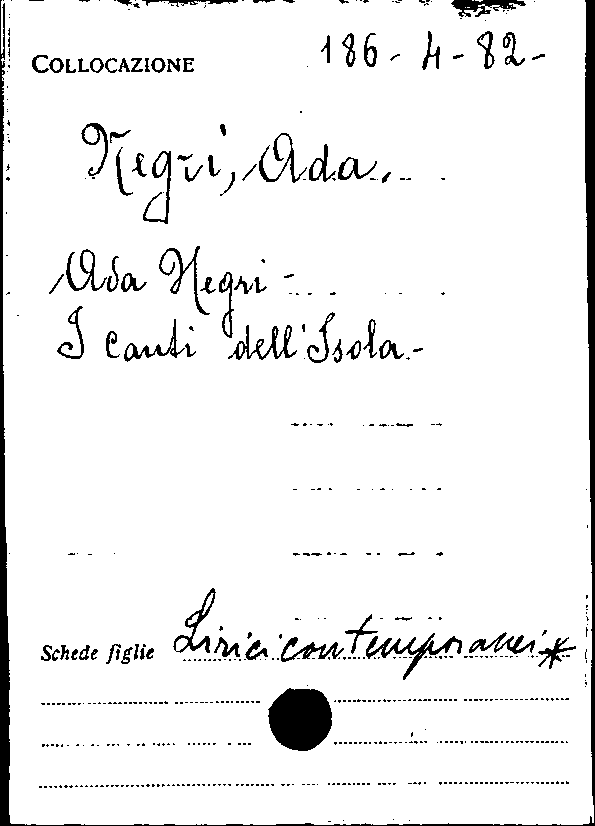 COLLOCAZIONE 186-4-82-
Negri, Ada.
Ada Negri -
I canti dell'Isola.-
Schede figlie Lirici contemporanei *